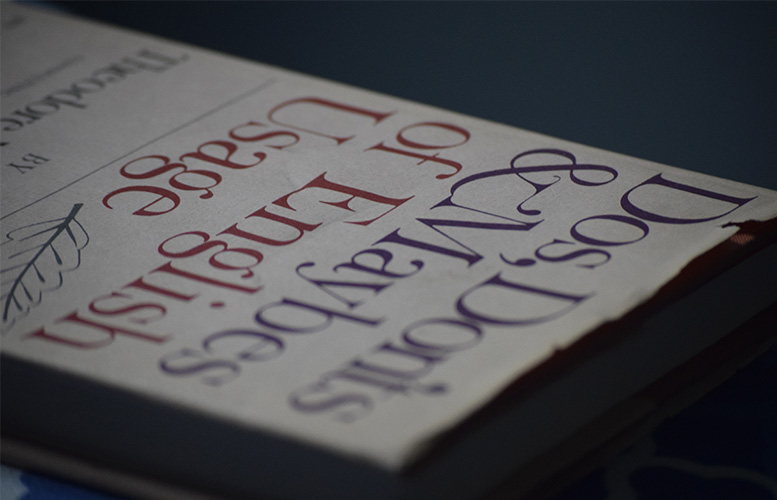 Dos, Don'ts
& Maybes
of English
Usage
BY
Theodore